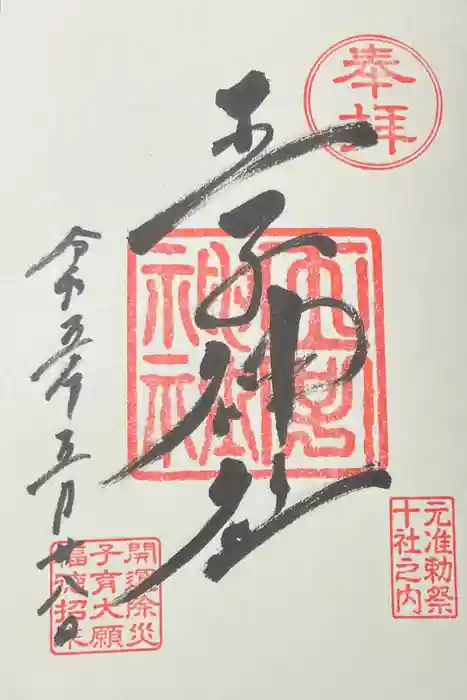 奉拝
王子神社
神社
元准勅祭
十社之内
令和五年五月廿八日
開運除災
子育大願
福徳招来